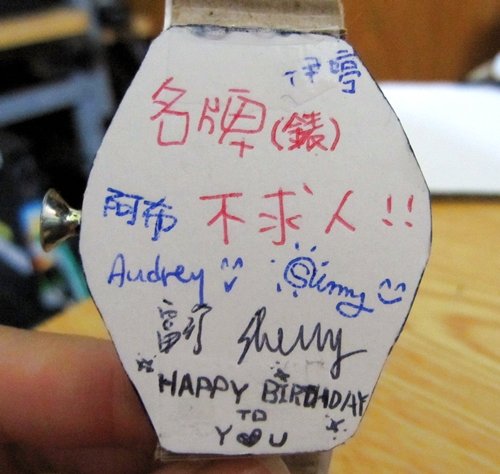 伊婷
名牌(錶)
阿布 不求人!!
Audrey Sunny
富 Sherry
HAPPY BIRTHDAY
TO
YOU